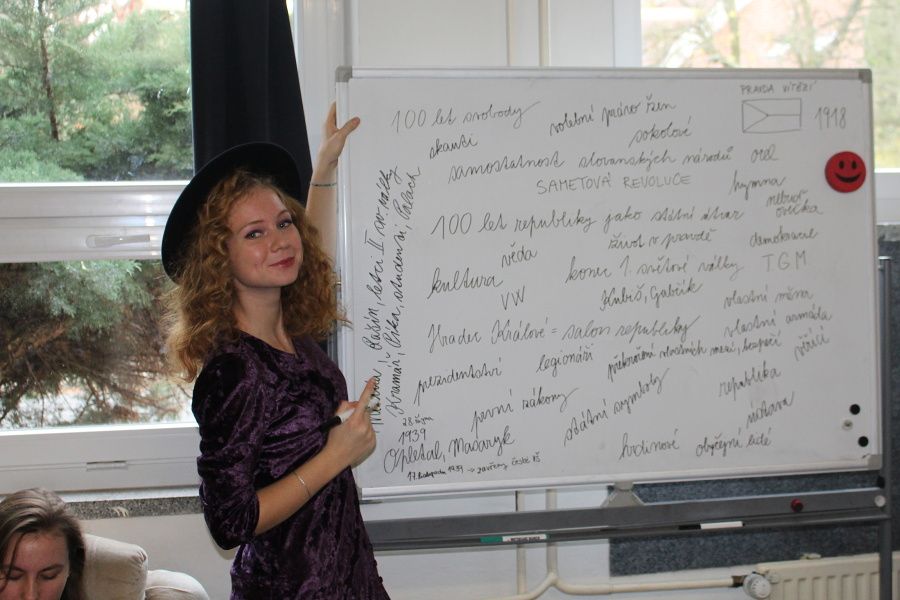 PRAVDA VÍTĚZÍ
1918
100 let svobody
volební právo žen
skauti
sokolové
samostatnost slovanských národů
orel
SAMETOVÁ REVOLUCE
hymna
100 let republiky jako státní útvar
věda
život v pravdě
demokracie
kultura
konec 1. světové války
TGM
VW
Kubiš, Gabčík
vlastní měna
Hradec Králové = salon republiky
vlastní armáda
prezidentství
legionáři
překročení vlastních mezí, bezpečí
vězící
první zákony
státní symboly
republika
ústava
hrdinové
obyčejní lidé
Rašín, letci II. sv. války
Kramář, Píka, studenti, Palach
28. října
1939
Opletal, Masaryk
17. listopadu 1939 → zavřeny české VŠ